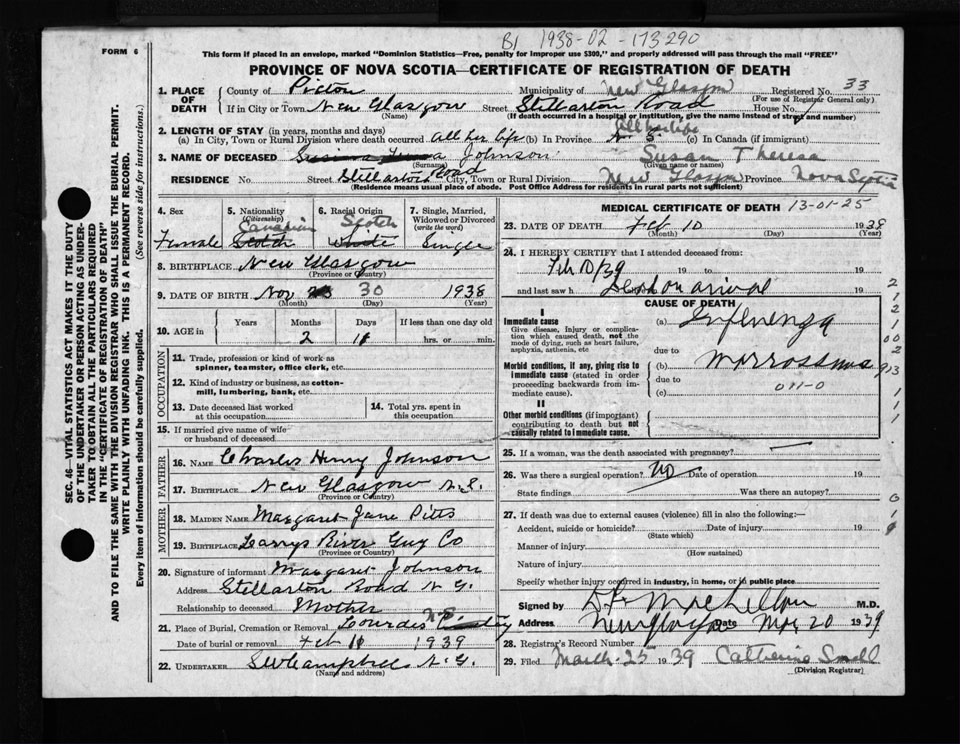 B1 1938-02-173290
FORM 6
This form if placed in an envelope, marked "Dominion Statistics—Free, penalty for improper use $300," and properly addressed will pass through the mail "FREE"
PROVINCE OF NOVA SCOTIA—CERTIFICATE OF REGISTRATION OF DEATH
SEC. 46—VITAL STATISTICS ACT MAKES IT THE DUTY
OF THE UNDERTAKER OR PERSON ACTING AS UNDER-
TAKER TO OBTAIN ALL THE PARTICULARS REQUIRED
IN THE "CERTIFICATE OF REGISTRATION OF DEATH"
AND TO FILE THE SAME WITH THE DIVISION REGISTRAR WHO SHALL ISSUE THE BURIAL PERMIT.
WRITE PLAINLY WITH UNFADING INK. THIS IS A PERMANENT RECORD.
Every item of information should be carefully supplied. (See reverse side for instructions.)
1. PLACE OF DEATH
County of Pictou Municipality of New Glasgow Registered No. 33
(For use of Registrar General only)
If in City or Town New Glasgow Street Stellarton Road House No.
(Name) (If death occurred in a hospital or institution, give the name instead of street and number)
2. LENGTH OF STAY (in years, months and days)
(a) In City, Town or Rural Division where death occurred all her life (b) In Province N S. All her life (c) In Canada (if immigrant)
3. NAME OF DECEASED Johnson Susan Theresa
(Surname) (Given name or names)
RESIDENCE No. Street Stellarton Road City, Town or Rural Division New Glasgow Province Nova Scotia
(Residence means usual place of abode. Post Office Address for residents in rural parts not sufficient)
4. Sex 5. Nationality (Citizenship) 6. Racial Origin 7. Single, Married, Widowed or Divorced (write the word)
Female Canadian Scotch Scotch White Single
8. BIRTHPLACE New Glasgow
(Province or Country)
9. DATE OF BIRTH Nov 30 1938
(Month) (Day) (Year)
10. AGE in Years Months Days If less than one day old
2 11 hrs. or min.
OCCUPATION
11. Trade, profession or kind of work as
spinner, teamster, office clerk, etc.
12. Kind of industry or business, as cotton-
mill, lumbering, bank, etc.
13. Date deceased last worked
at this occupation
14. Total yrs. spent in
this occupation
15. If married give name of wife
or husband of deceased
FATHER
16. NAME Charles Henry Johnson
17. BIRTHPLACE New Glasgow N.S.
(Province or Country)
MOTHER
18. MAIDEN NAME Margaret Jane Pitts
19. BIRTHPLACE Larrys River Guy Co
(Province or Country)
20. Signature of informant Margaret Johnson
Address Stellarton Road N.G.
Relationship to deceased Mother
21. Place of Burial, Cremation or Removal Lourdes N.S.
Date of burial or removal Feb 11 1939
22. UNDERTAKER S W Campbell N.G.
(Name and address)
MEDICAL CERTIFICATE OF DEATH 13-01-25
23. DATE OF DEATH Feb 10 1939
(Month) (Day) (Year)
24. I HEREBY CERTIFY that I attended deceased from:
Feb 10/39 19 to 19
and last saw h Dead on arrival 19
CAUSE OF DEATH
I
Immediate cause
Give disease, injury or complica-
tion which caused death, not the
mode of dying, such as heart failure,
asphyxia, asthenia, etc
(a) Influenza
due to
Morbid conditions, if any, giving rise to
immediate cause (stated in order
proceeding backwards from im-
mediate cause).
(b)
due to
(c) 011-0
II
Other morbid conditions (if important)
contributing to death but not
causally related to immediate cause.
25. If a woman, was the death associated with pregnancy?
26. Was there a surgical operation? No Date of operation 19
State findings Was there an autopsy?
27. If death was due to external causes (violence) fill in also the following:—
Accident, suicide or homicide? Date of injury 19
(State which)
Manner of injury
(How sustained)
Nature of injury
Specify whether injury occurred in industry, in home, or in public place
Signed by M.D.
Address New Glasgow Date Mar 20 1939
28. Registrar's Record Number
29. Filed March 25 1939 Catherine
(Division Registrar)